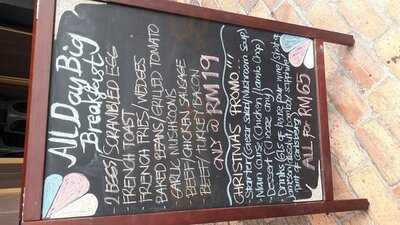 All Day Big
Breakfast
- 2 EGGS/SCRAMBLED EGG
- FRENCH TOAST
- FRENCH FRIES/WEDGES
- BAKED BEANS/GRILLED TOMATO
- GARLIC MUSHROOMS
- BEEF/CHICKEN SAUSAGE
- BEEF/TURKEY BACON
ONLY @ RM19
CHRISTMAS PROMO!!!
Starter (Caesar Salad/Mushroom Soup)
- Main Course (Chicken/Lamb Chop)
- Dessert (
- Drinks (
ALL FOR RM65